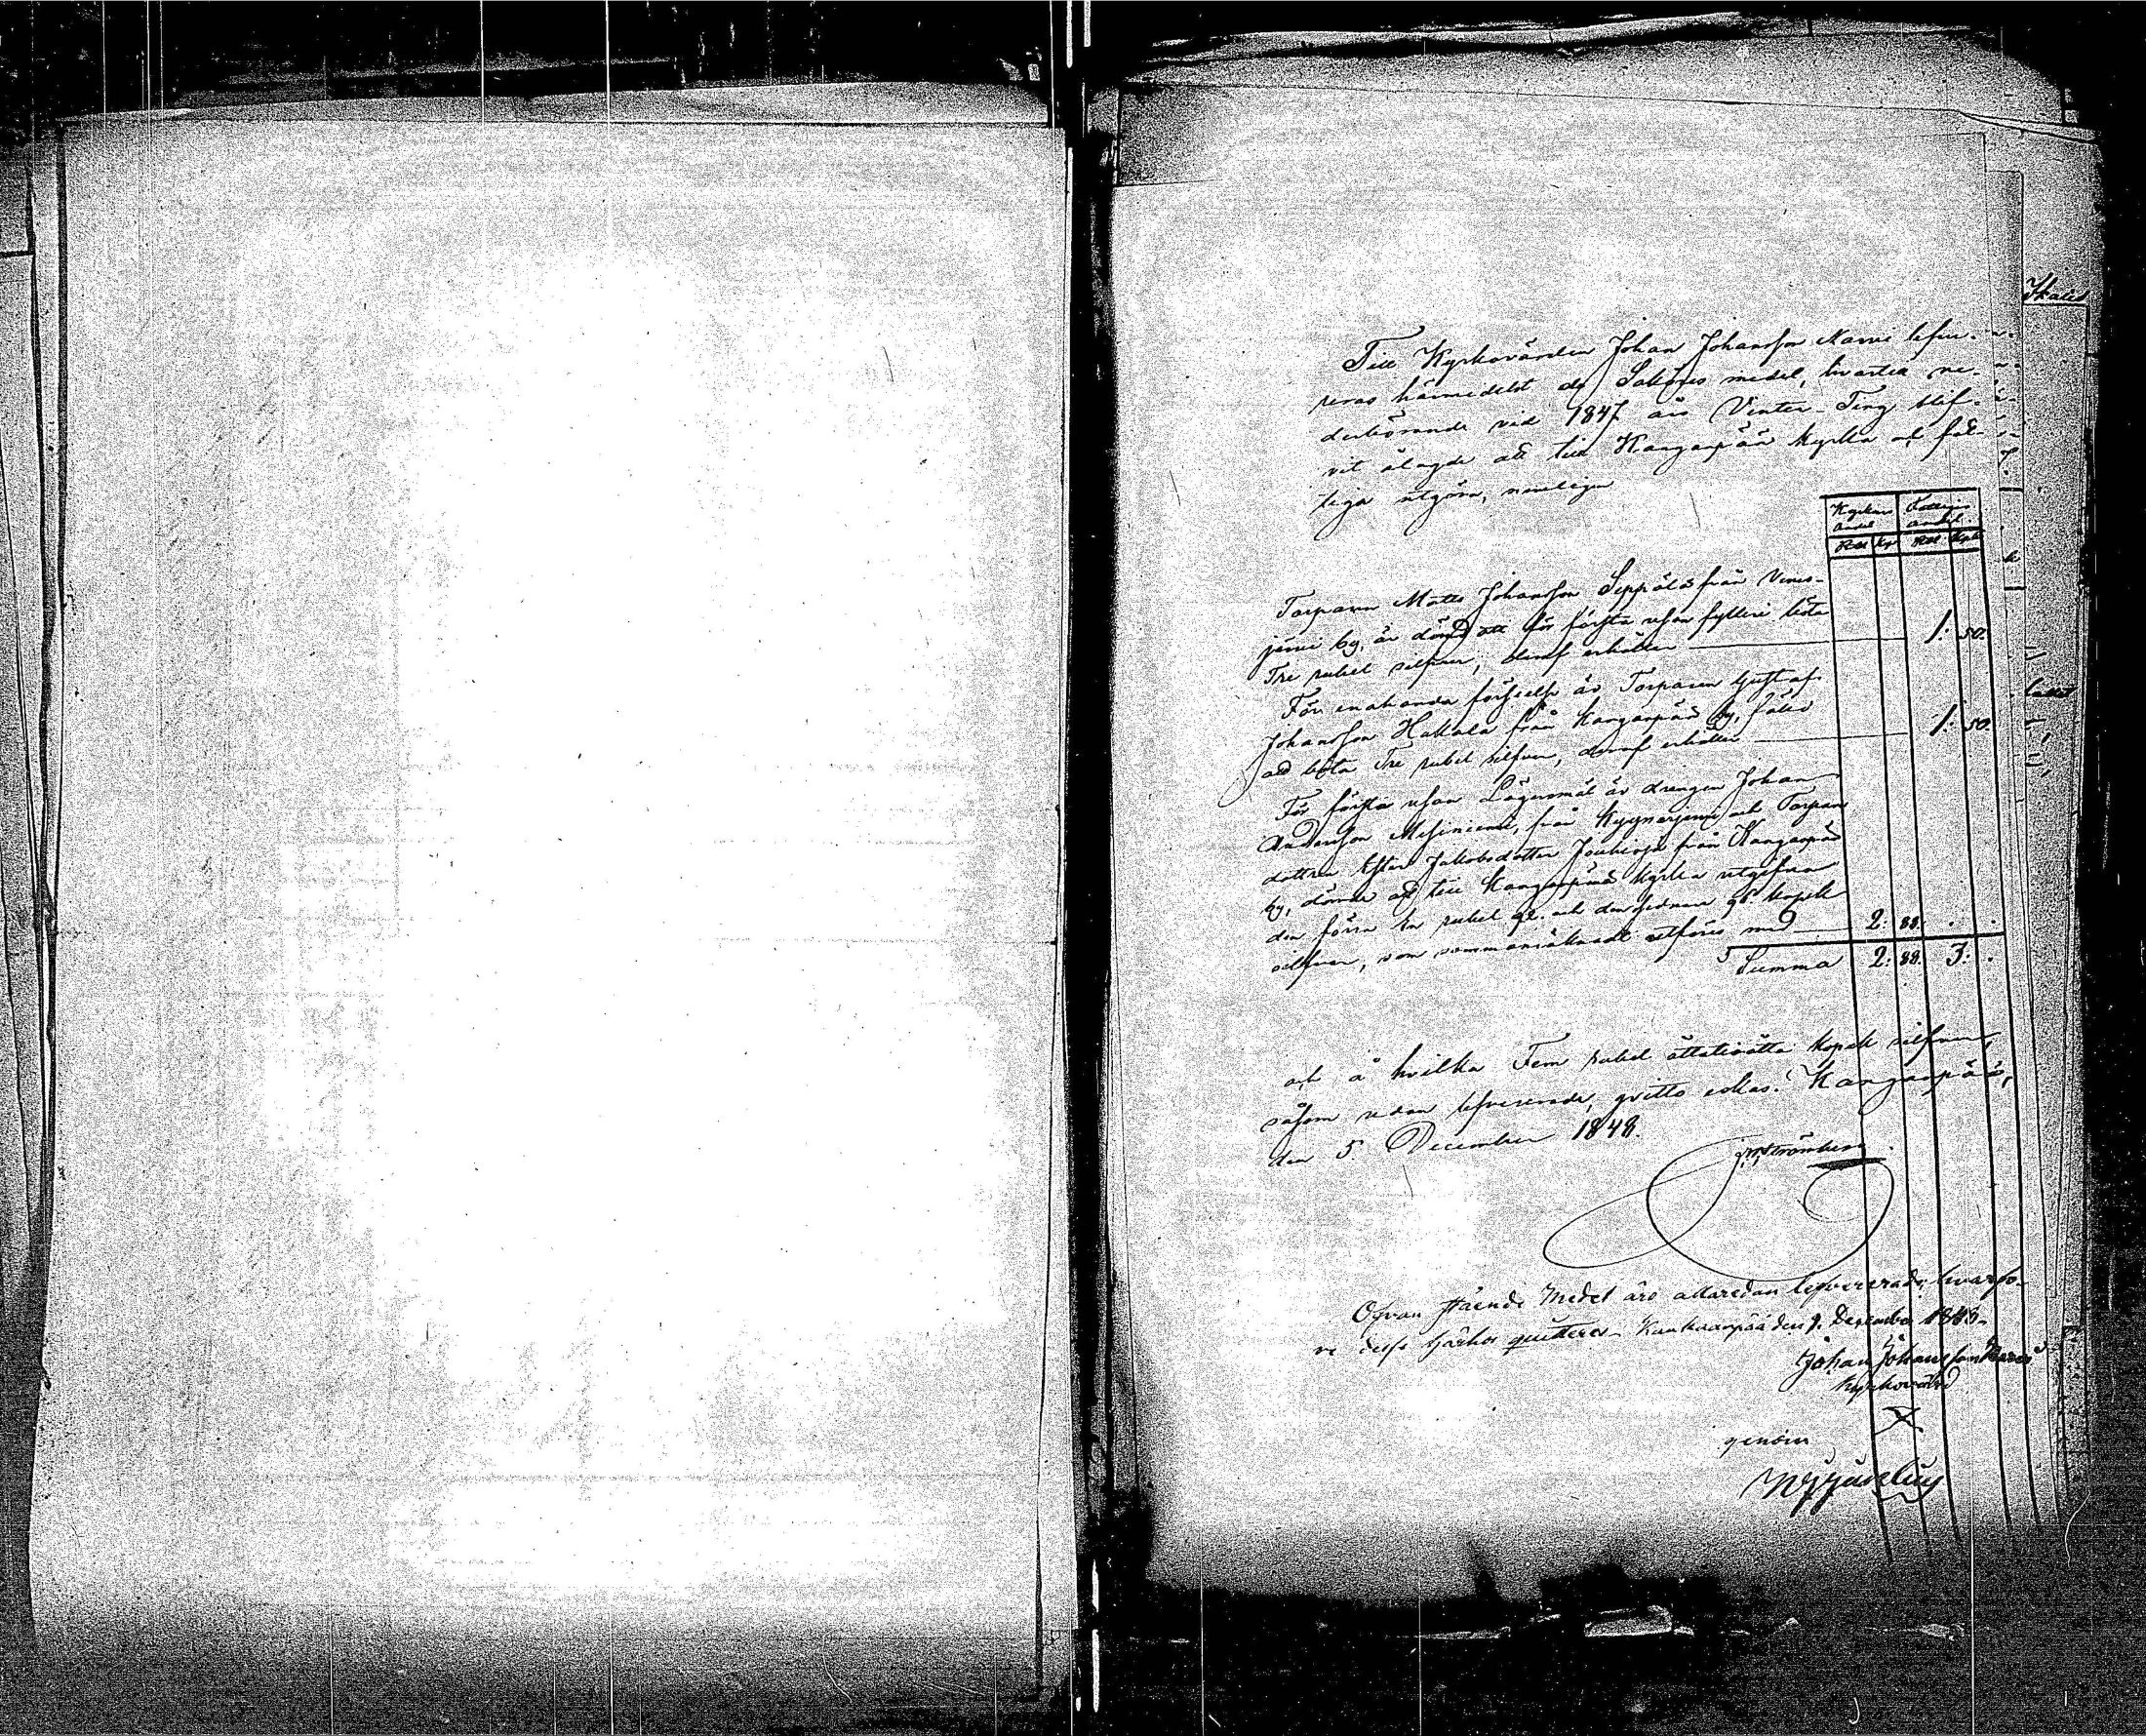 Till Kyrkovärden Johan Johansson Narvi lefve-
reras härmedelst de Saköres medel, hvartill ne-
danförande vid 1847 års Vinter-Ting blif-
vit ålagde att till Kangaspää kyrka och fat-
tiga utgöra, nemligen
Kyrkans Fattiges
andel andel
Rbl Kp Rbl Kpk
Torparen Matts Johansson Seppälä från Venes-
järvi by, är dömd att för första resan fylleri böta
Tre rubel silfver, deraf erhålles 1: 50.
För enahanda förseelse är Torparen Gustaf
Johansson Hakala från Kangaspää by, fäld
att böta Tre rubel silfver, deraf erhålles 1: 50.
För första resan Lägersmål är drengen Johan
Andersson Mesiniemi, från Kyynärjärvi och Torpare
dottren Ester Jakobsdotter från Kangaspää
by, dömde att till Kangaspää kyrka utgifva
den förra En rubel 92. och den sednare 96 kopek
silfver, som sammanräknadt utföres med 2: 88. . .
Summa 2: 88. 3: .
och å hvilka Fem rubel åttatioåtta kopek silfver,
såsom redan lefvererade, qvitto eskas. Kangaspää,
den 5 December 1848.
Strömberg
Ofvan stående Medel äro allaredan lefvererade; hvarfö-
re dess härhos quitteras. Kankaanpää den 9. December 1848.
Johan Johansson Narvi
Kyrkovärd
X
genom